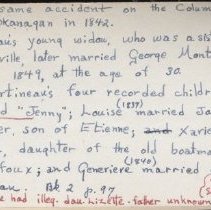 same accident on the Colum
Okanagan in 1842.
au's young widow, who was a sis
ville, later married George Mont
1849, at the age of 30.
artineau's four recorded childr
d "Jenny"; Louise married Ja
(1839)
er, son of Etienne; and Xavie
, daughter of the old boatma
(1840)
foux; and Genevieve married
au. Bk 2 p. 97
e had illeg. dau. Lizette - father unknown